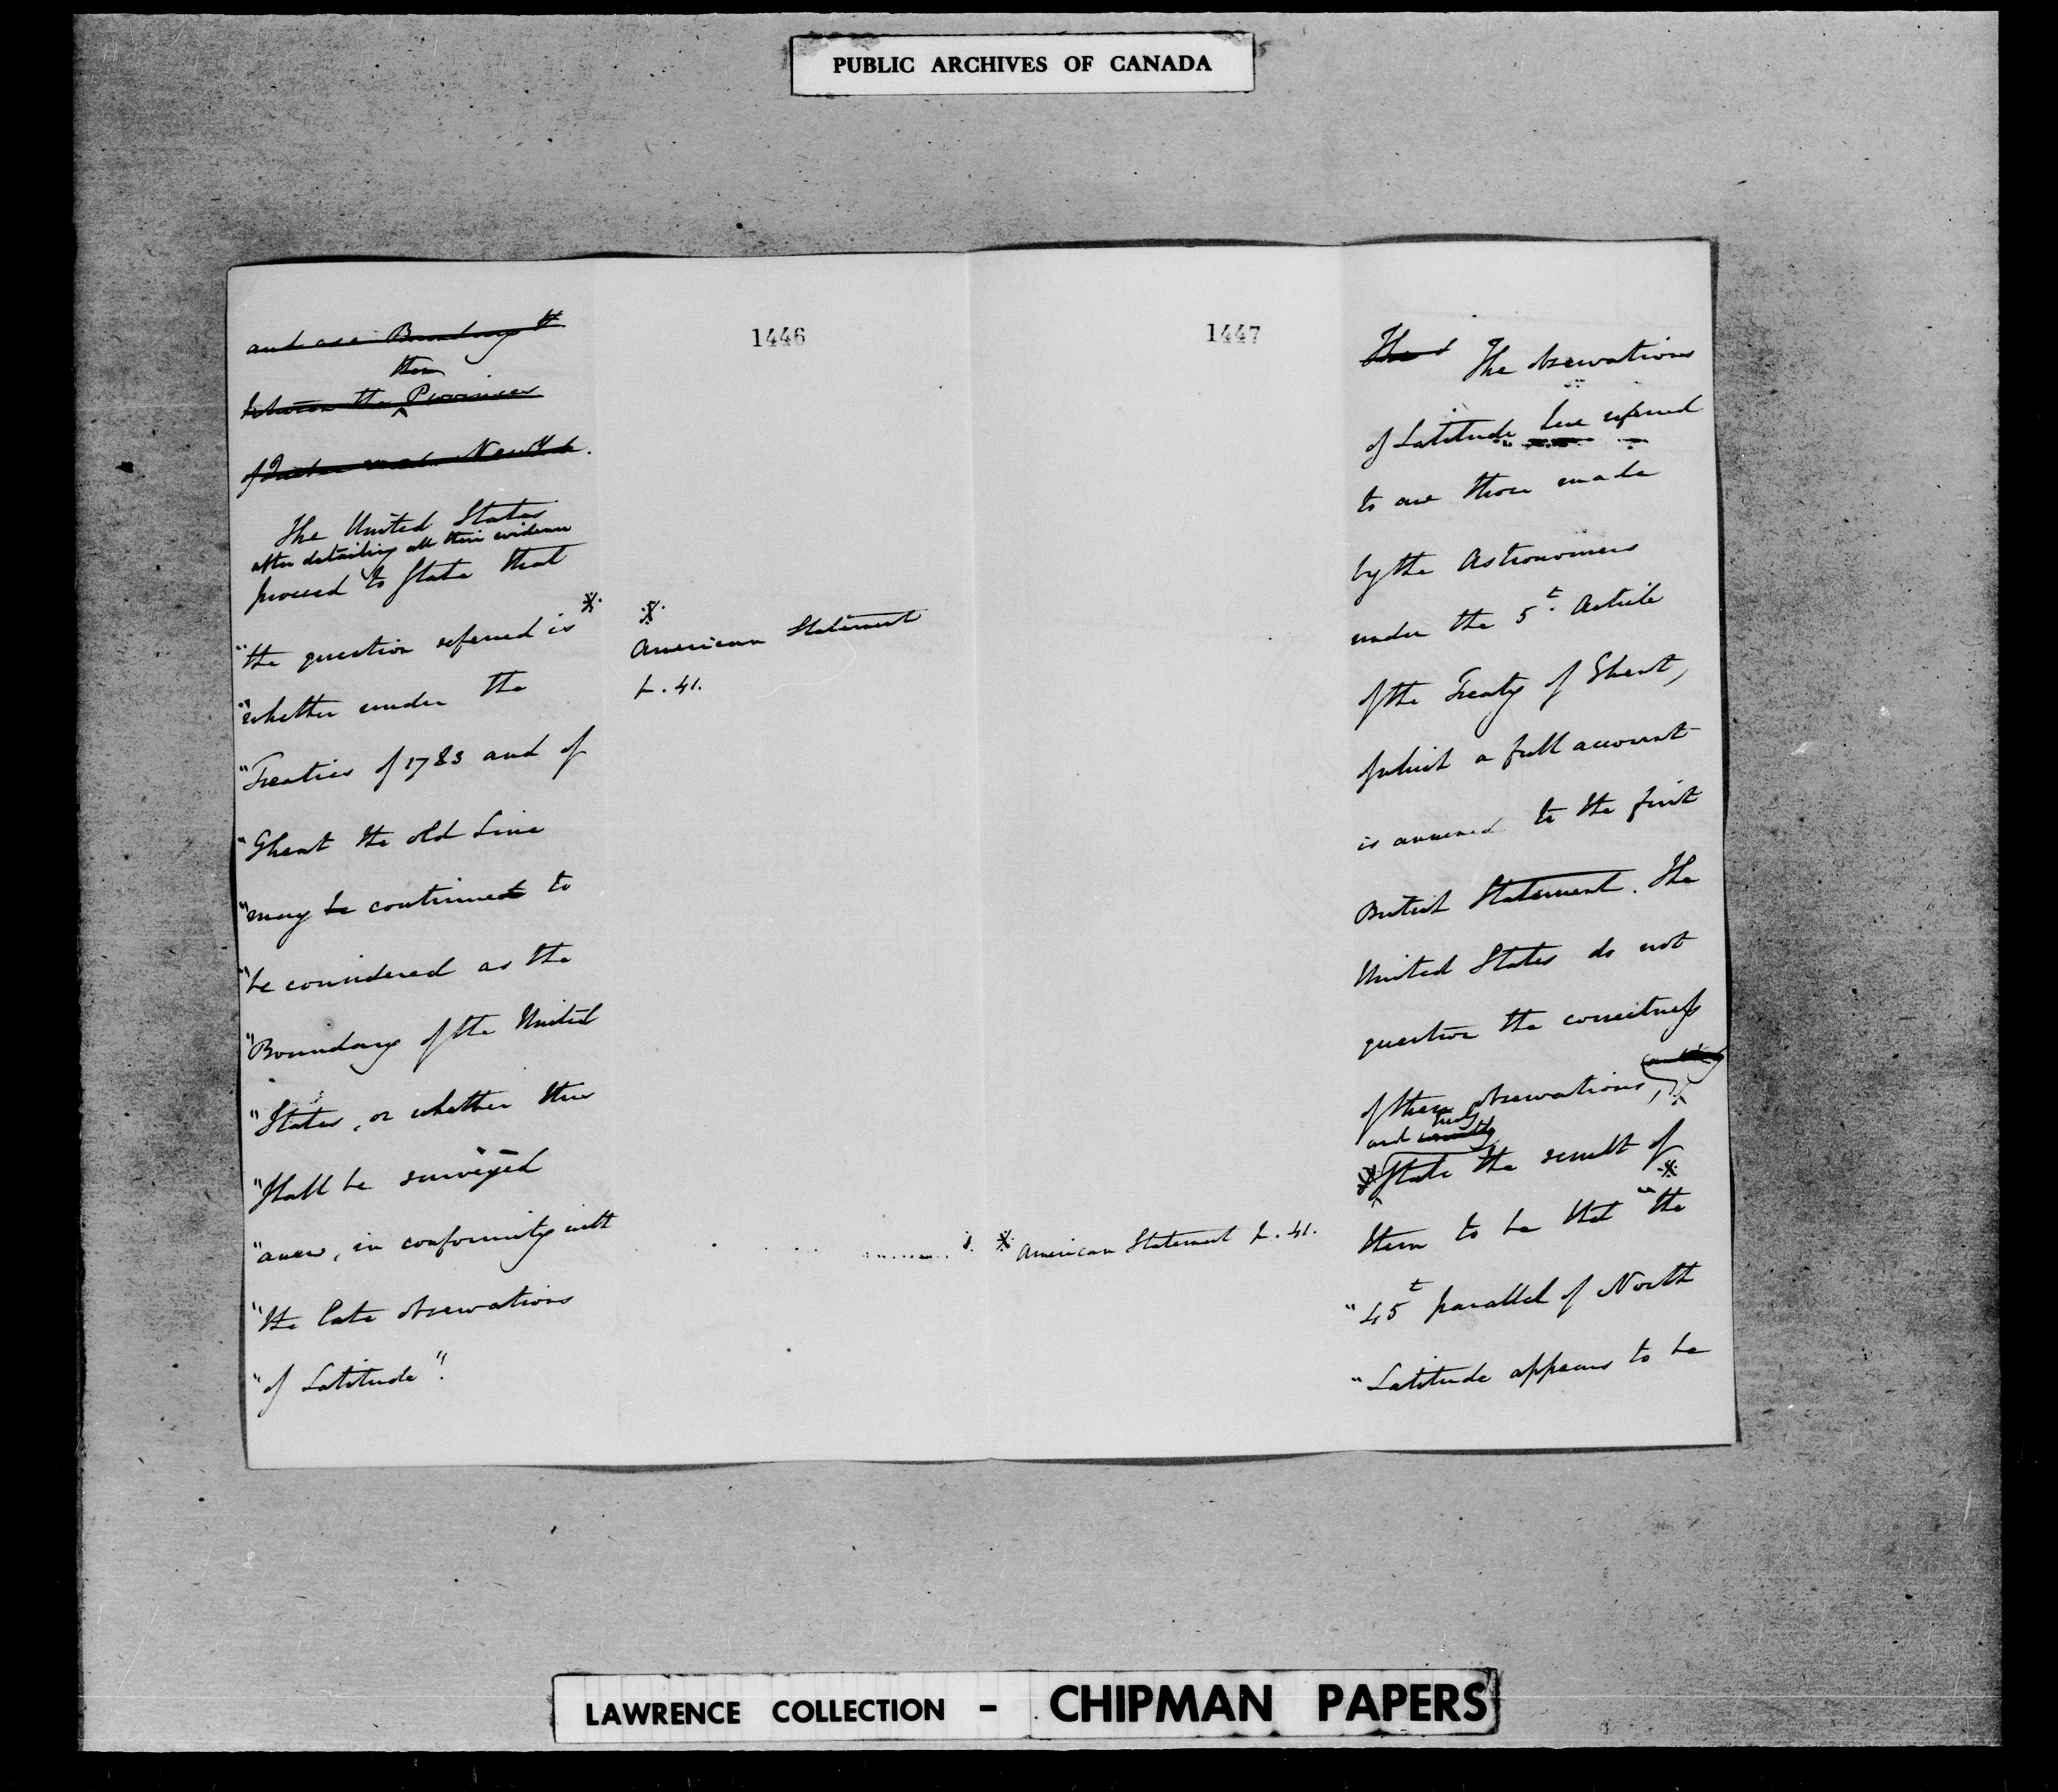 PUBLIC ARCHIVES OF CANADA
1446
and as a Boundary
then
between the Provinces
of Quebec and New York.
The United States
after detailing all their evidence
proceed to State that
"the question referred is ※
"whether under the
"Treaties of 1783 and of
"Ghent the old Line
"may be continued to
"be considered as the
"Boundary of the United
"States, or whether this
"shall be surveyed
"anew, in conformity with
"the late observations
"of Latitude".
※
American Statement
p. 41.
1447
The The observations
of Latitude here referred
to are those made
by the Astronomers
under the 5t. Article
of the Treaty of Ghent,
of which a full account
is annexed to the first
British Statement. The
United States do not
question the correctness
of these observations,
and they
State the result of
them to be that ※ "the
"45t parallel of North
"Latitude appears to be
※ American Statement p. 41.
LAWRENCE COLLECTION - CHIPMAN PAPERS